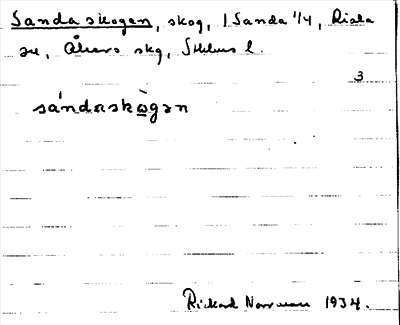 Sandaskogen, skog, i Sanda 1/4, Riala
sn, Åkers skg, Sthlms l.
3
sándaskò̱gən
Rickard Norrman 1934.